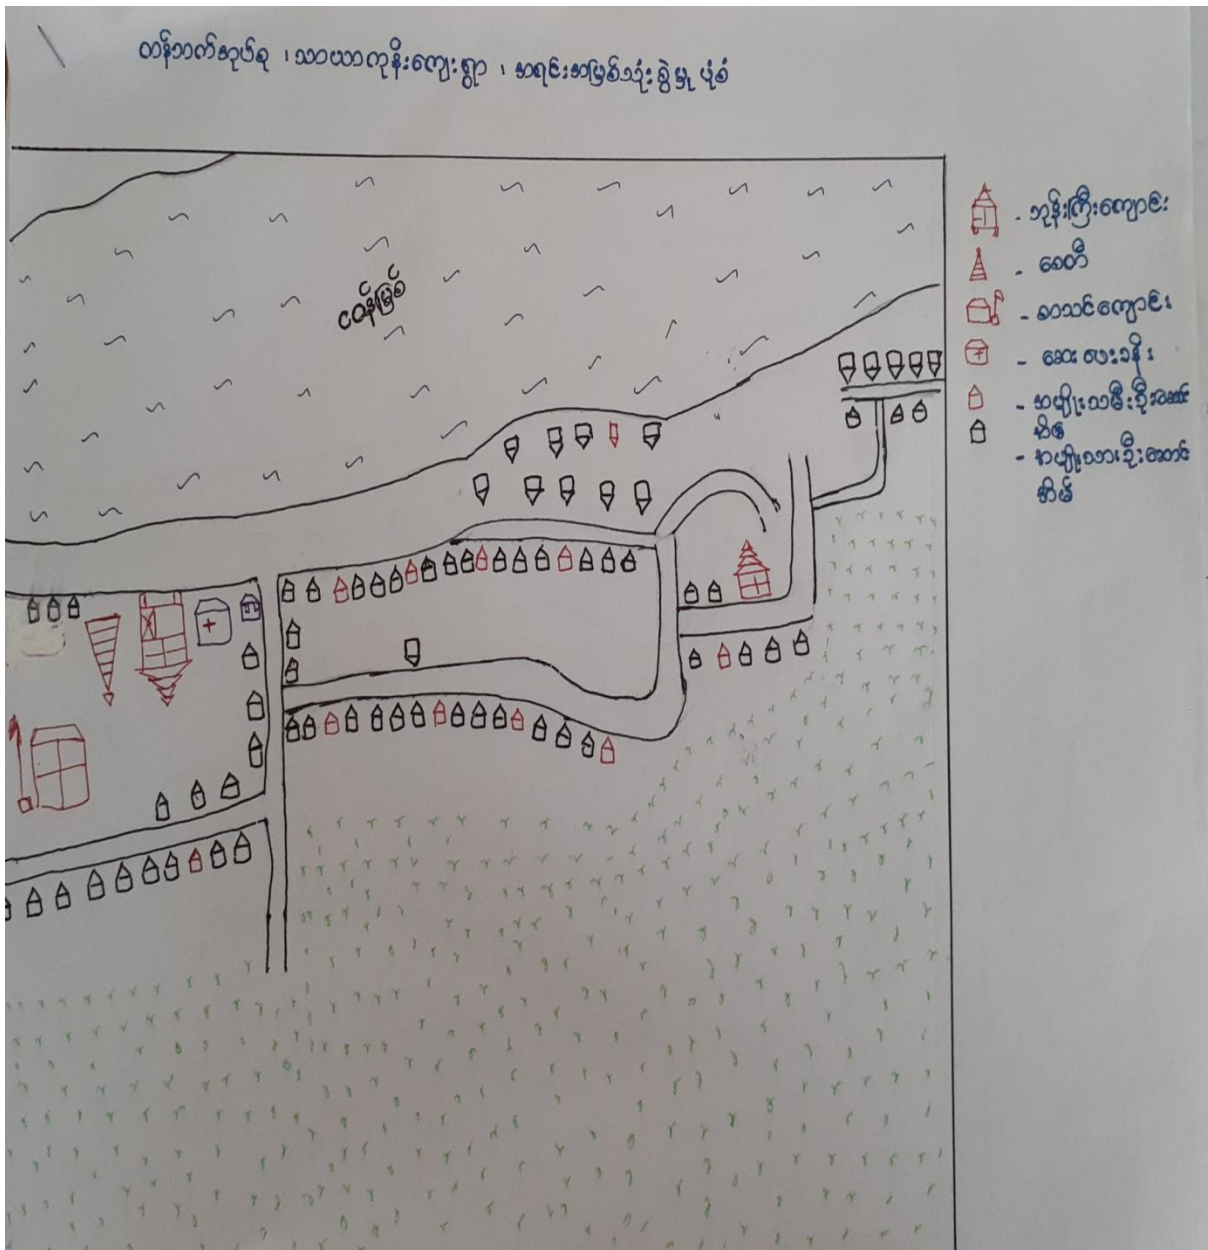 တန်ဘက်အုပ်စု ၊ သာယာကုန်းကျေးရွာ ၊ အရင်းအမြစ်သုံးစွဲမှု ပုံစံ
ငဝန်မြစ်
- ဘုန်းကြီးကျောင်း
- စေတီ
- စာသင်ကျောင်း
- ဆေးပေးခန်း
- အမျိုးသမီးဦးဆောင်
အိမ်
- အမျိုးသားဦးဆောင်
အိမ်